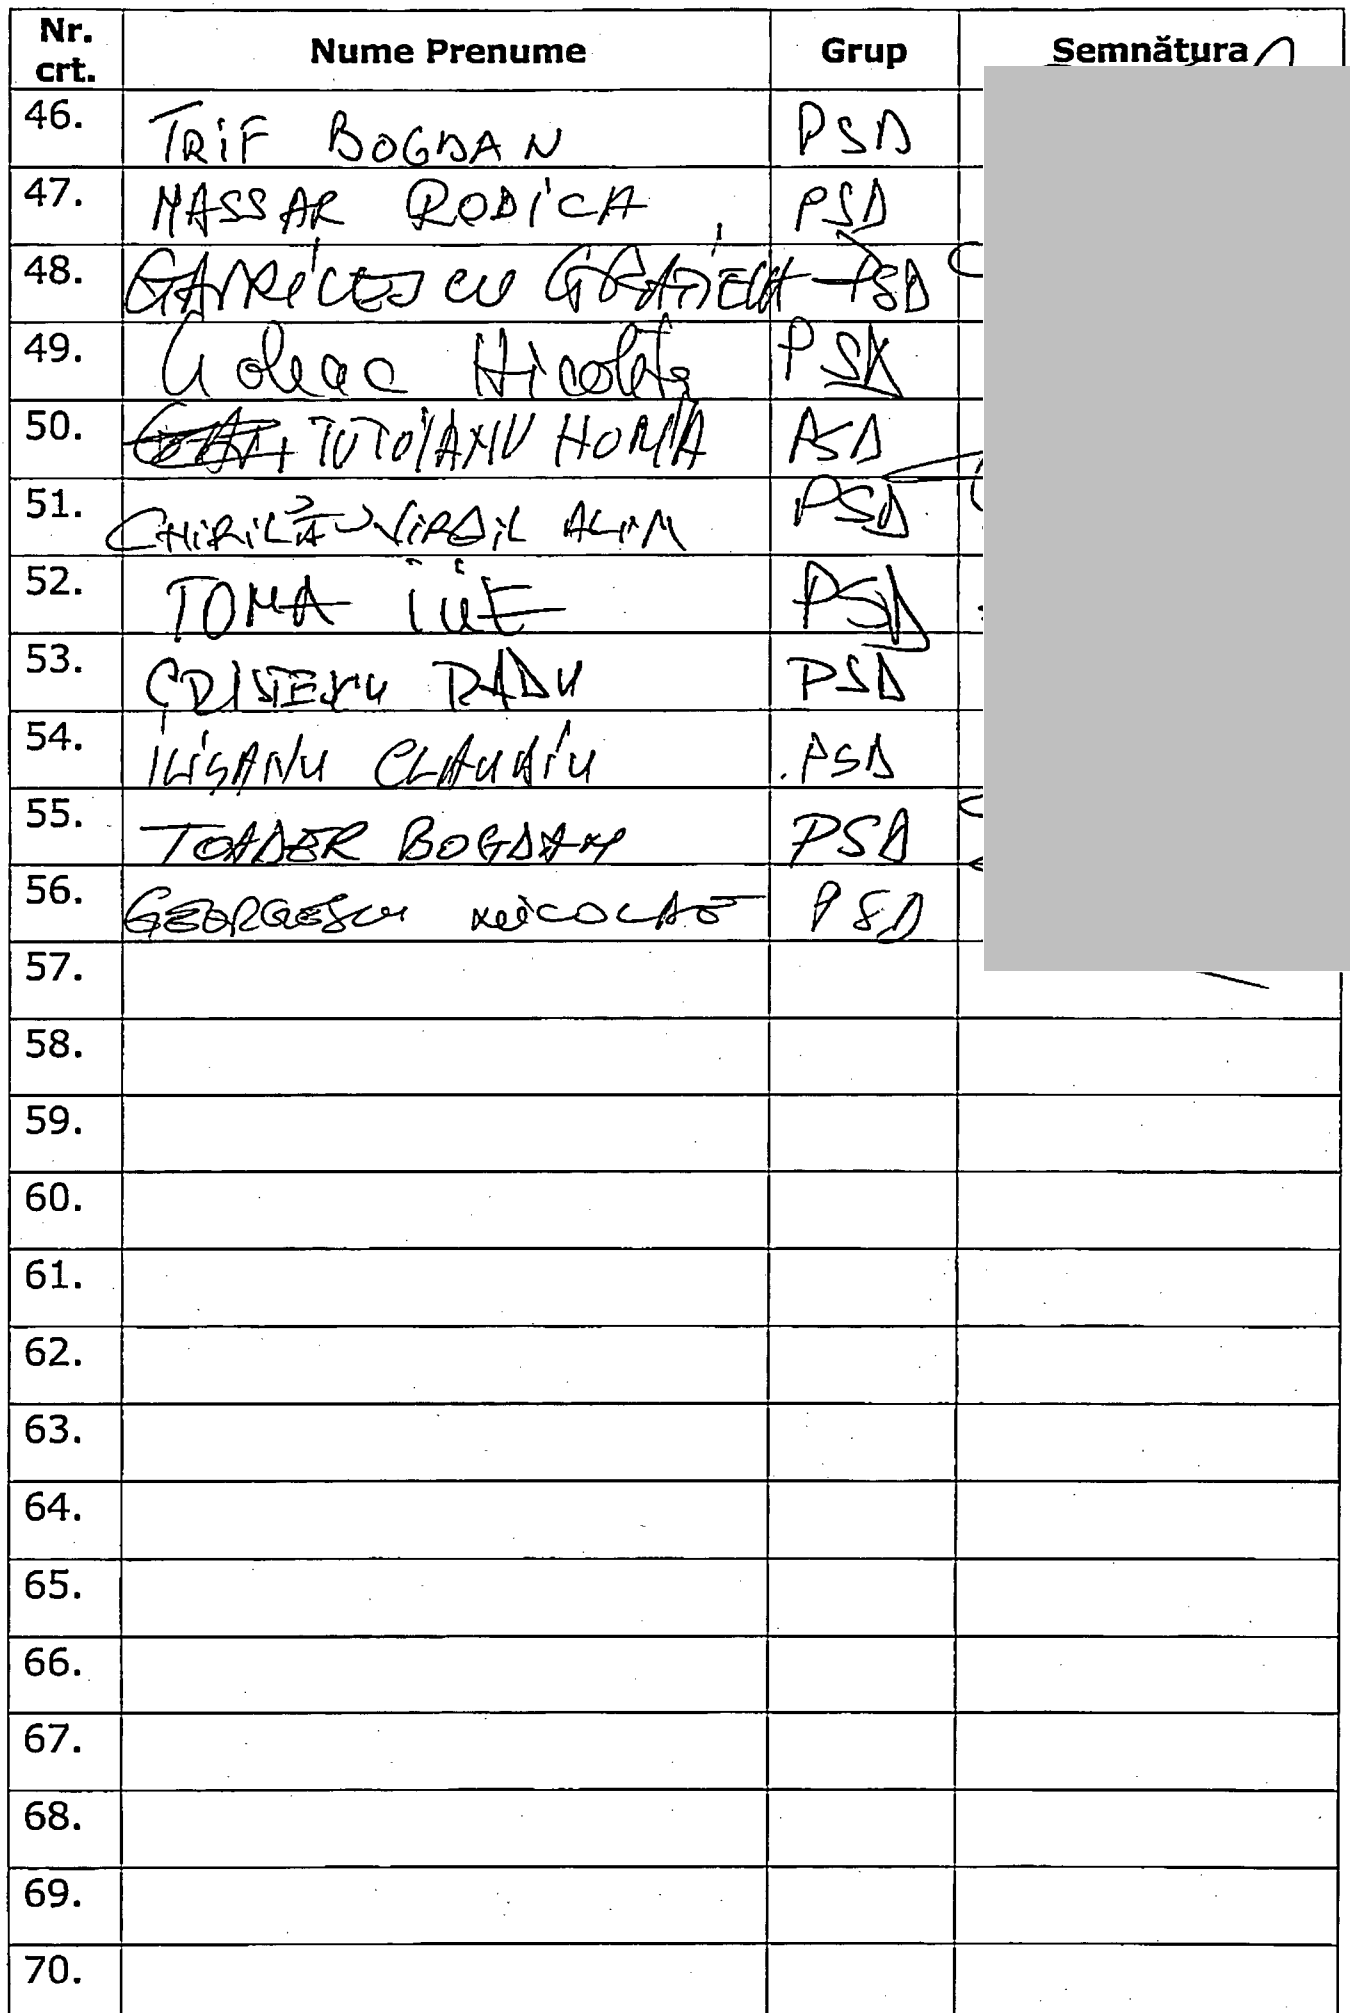 Nr. crt. Nume Prenume Grup Semnătura
46. TRIF BOGDAN PSD
47. MASSAR RODICA PSD
48. GAVRILESCU GRAȚIELA PSD
49. Nicoleta PSD
50. TUTOIANU HORIA PSD
51. CHIRILĂ VIRGIL ALIN PSD
52. TOMA ILIE PSD
53. CRISTESCU RADU PSD
54. ILIȘANU CLAUDIU PSD
55. TOADER BOGDAN PSD
56. GEORGESCU NICOLAE PSD
57.
58.
59.
60.
61.
62.
63.
64.
65.
66.
67.
68.
69.
70.